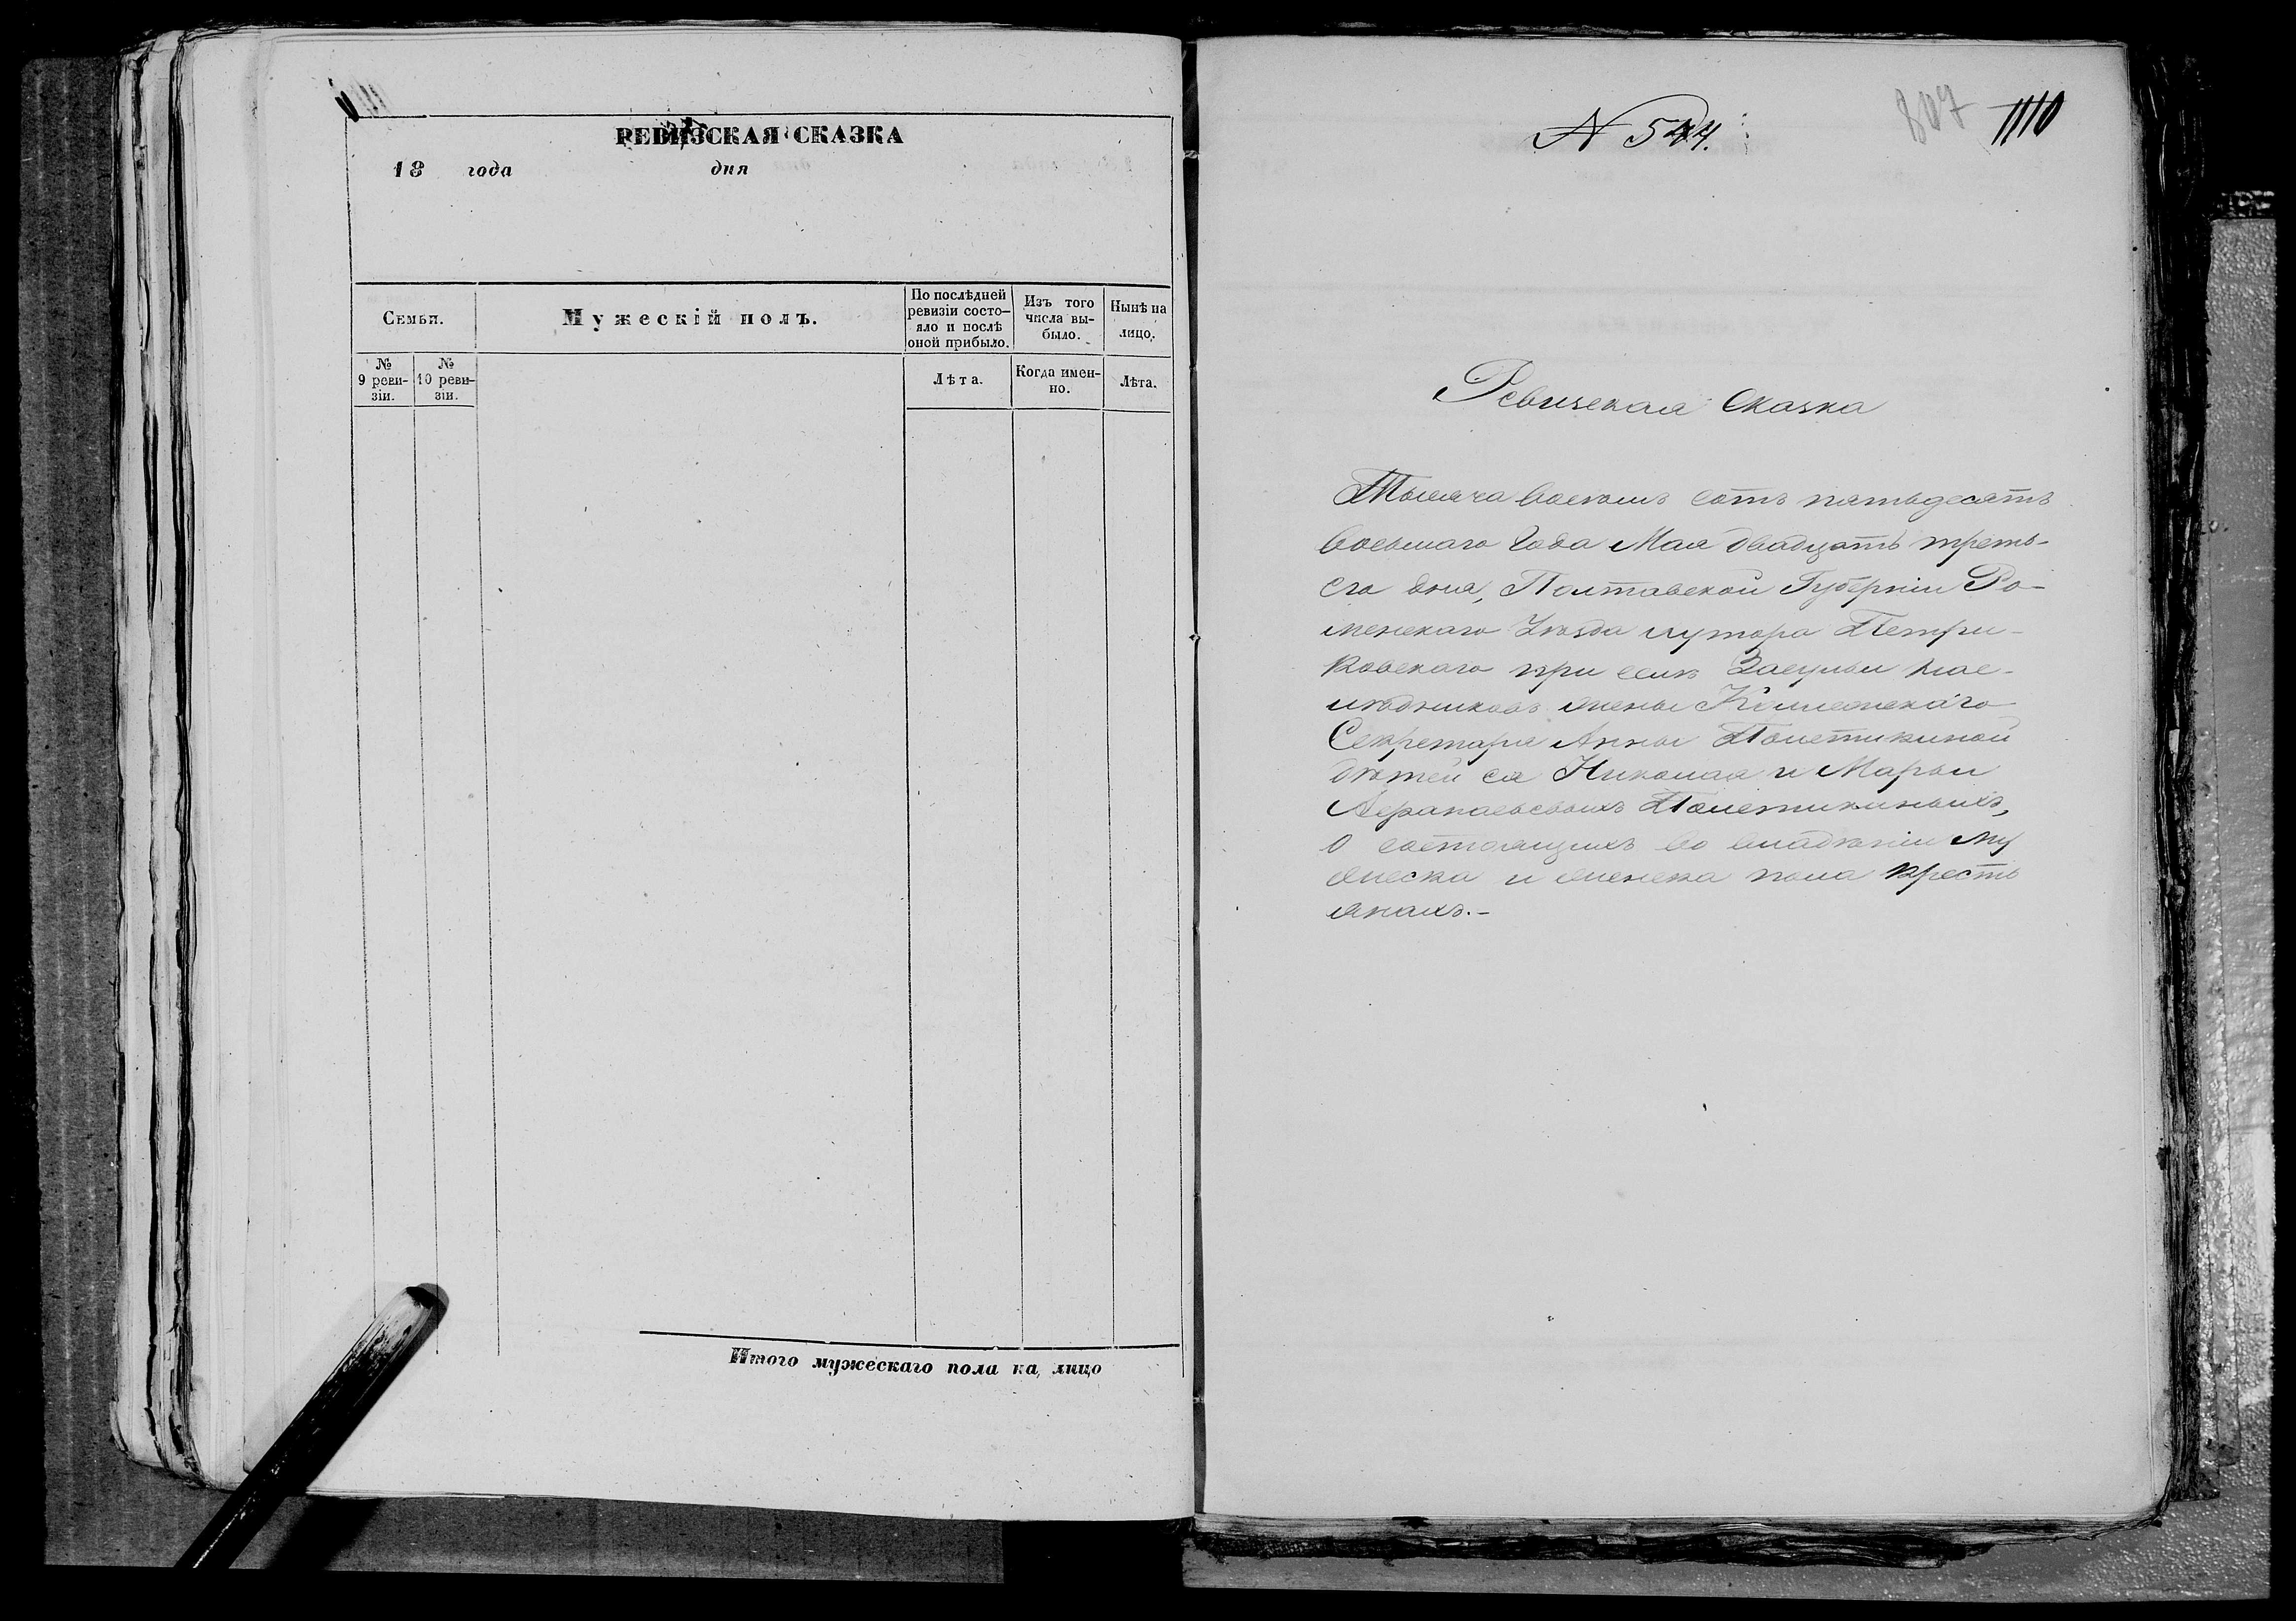 РЕВИЗСКАЯ СКАЗКА
18 года дня
Семьи.
Мужескій полъ.
По послѣдней
ревизіи состо-
яло и послѣ
оной прибыло.
Изъ того
числа вы-
было.
Нынѣ на
лицо.
№
9 реви-
зіи.
№
10 реви-
зіи.
Лѣта.
Когда имен-
но.
Лѣта.
Итого мужескаго пола на лицо
N 544.
807
Ревизская Сказка
Тысяча восемь сотъ пятьдесятъ
восьмаго Года Мая двадцать треть-
его дня, Полтавской Губерніи Ро-
менскаго Уѣзда хутора Петри-
ковскаго при селѣ Засульи нас-
лѣдниковъ жены Коллежскаго
Секретаря Анны Полетикиной
дѣтей ея Николая и Марьи
Полетикиныхъ,
о состоящихъ во владѣніи му
жеска и женска пола кресть
янахъ.-